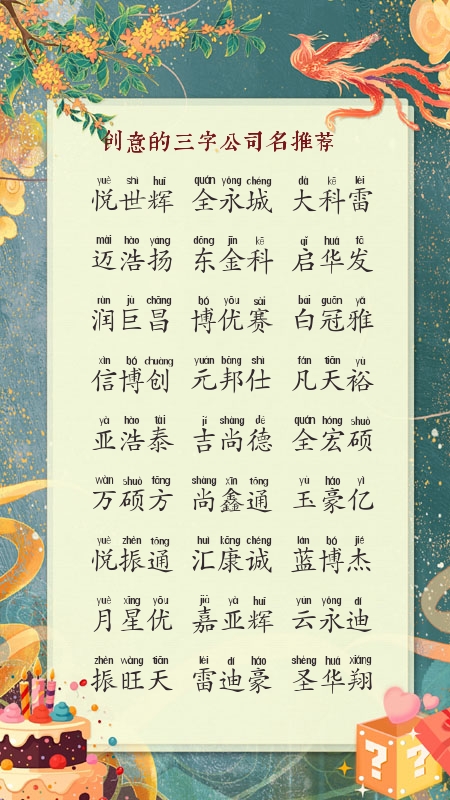 创意的三字公司名推荐
yuè shì huī quán yǒng chéng dà kē léi
悦世辉 全永城 大科雷
mài hào yáng dōng jīn kē qǐ huá fā
迈浩扬 东金科 启华发
rùn jù chāng bó yōu sài bái guān yǎ
润巨昌 博优赛 白冠雅
xìn bó chuàng yuán bāng shì fán tiān yù
信博创 元邦仕 凡天裕
yà hào tài jí shàng dé quán hóng shuò
亚浩泰 吉尚德 全宏硕
wàn shuò fāng shàng xīn tōng yù háo yì
万硕方 尚鑫通 玉豪亿
yuè zhèn tōng huì kāng chéng lán bó jié
悦振通 汇康诚 蓝博杰
yuè xīng yōu jiā yà huī yún yǒng dí
月星优 嘉亚辉 云永迪
zhèn wàng tiān léi dí háo shèng huá xiáng
振旺天 雷迪豪 圣华翔
? ?